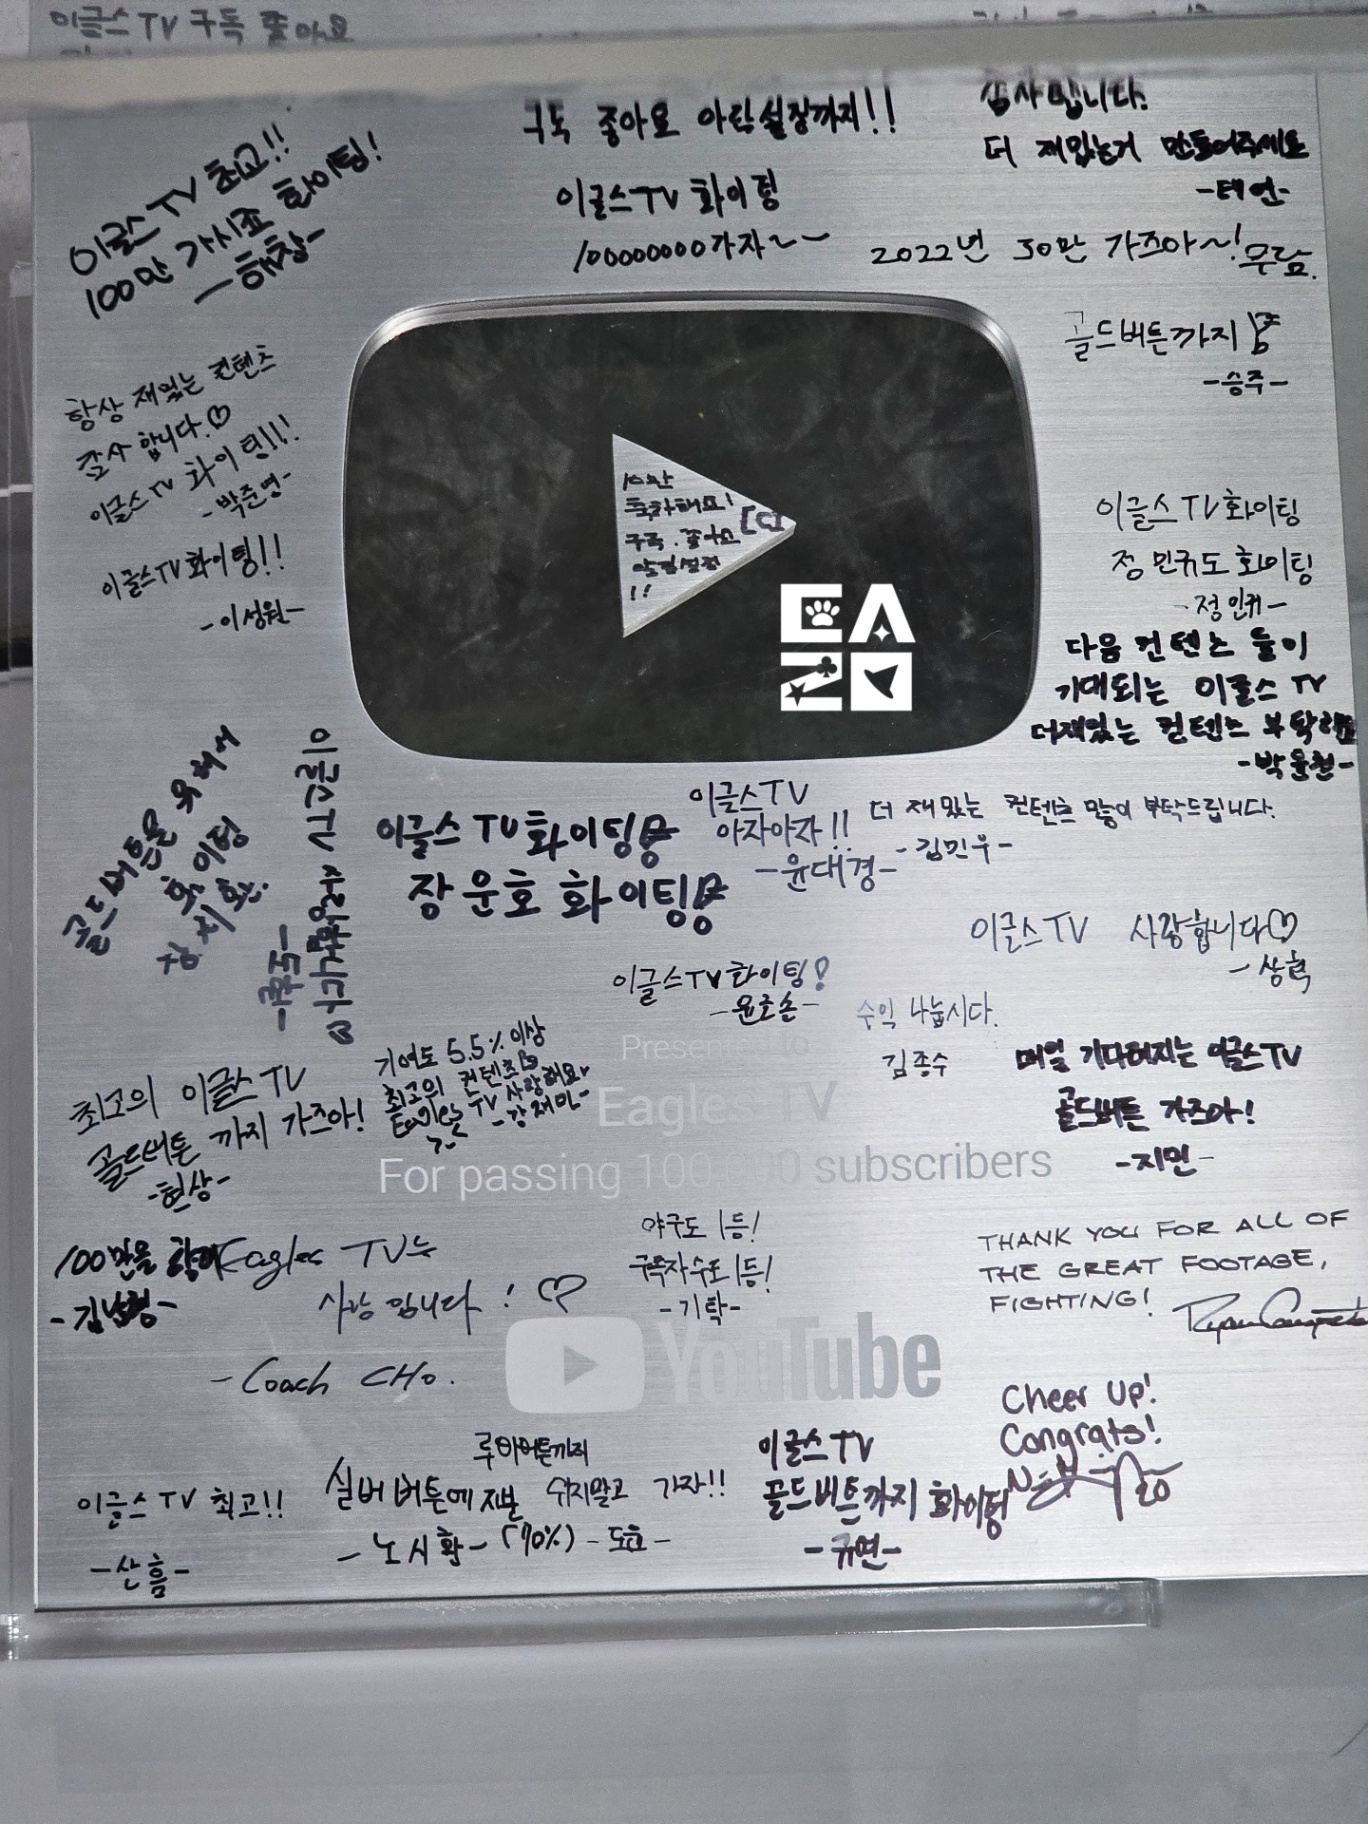 이글스TV 구독 좋아요
이글스TV 최고!!
100만 가시죠 화이팅!
구독 좋아요 알람설정까지!!
이글스TV 화이팅
100000000가자~~
감사합니다.
더 재밌는거 만들어주세요
-태연-
2022년 30만 가즈아~!
골드버튼까지
-승주-
항상 재밌는 컨텐츠
감사합니다.♡
이글스TV 화이팅!!!
-박준영-
이글스TV화이팅!!
-이성원-
10만
축하해요!
구독. 좋아요
알림설정
!!
EA
이글스TV화이팅
정민규도 화이팅
다음 컨텐츠 들이
기대되는 이글스TV
더재밌는 컨텐츠 부탁해요
골드버튼을 위해
화이팅
이글스TV 화이팅
장운호 화이팅
이글스TV
아자아자!!
-윤대경-
더 재밌는 컨텐츠 많이 부탁드립니다.
-김민우-
이글스TV 사랑합니다♡
-상혁
이글스TV화이팅!
-윤호솔-
수익 나눕시다.
김종수
매일 기다려지는 이글스TV
골드버튼 가즈아!
-지민-
최고의 이글스TV
골드버튼 까지 가즈아!
-현상-
기여도 5.5% 이상
최고의 컨텐츠
Eagles TV 사랑해요
-강재민-
Presented to
Eagles TV
For passing 100,000 subscribers
100만을 향해
Eagles TV는
사랑입니다! ♡
-Coach CHO.
야구도 1등!
구독자수도 1등!
-기탁-
THANK YOU FOR ALL OF
THE GREAT FOOTAGE,
FIGHTING!
YouTube
Cheer Up!
Congrats!
20
이글스TV 최고!!
-산흠-
실버버튼에 지분
-노시환- (70%)
루비버튼까지
쉬지말고 가자!!
-도효-
이글스TV
골드버튼까지 화이팅
-규연-